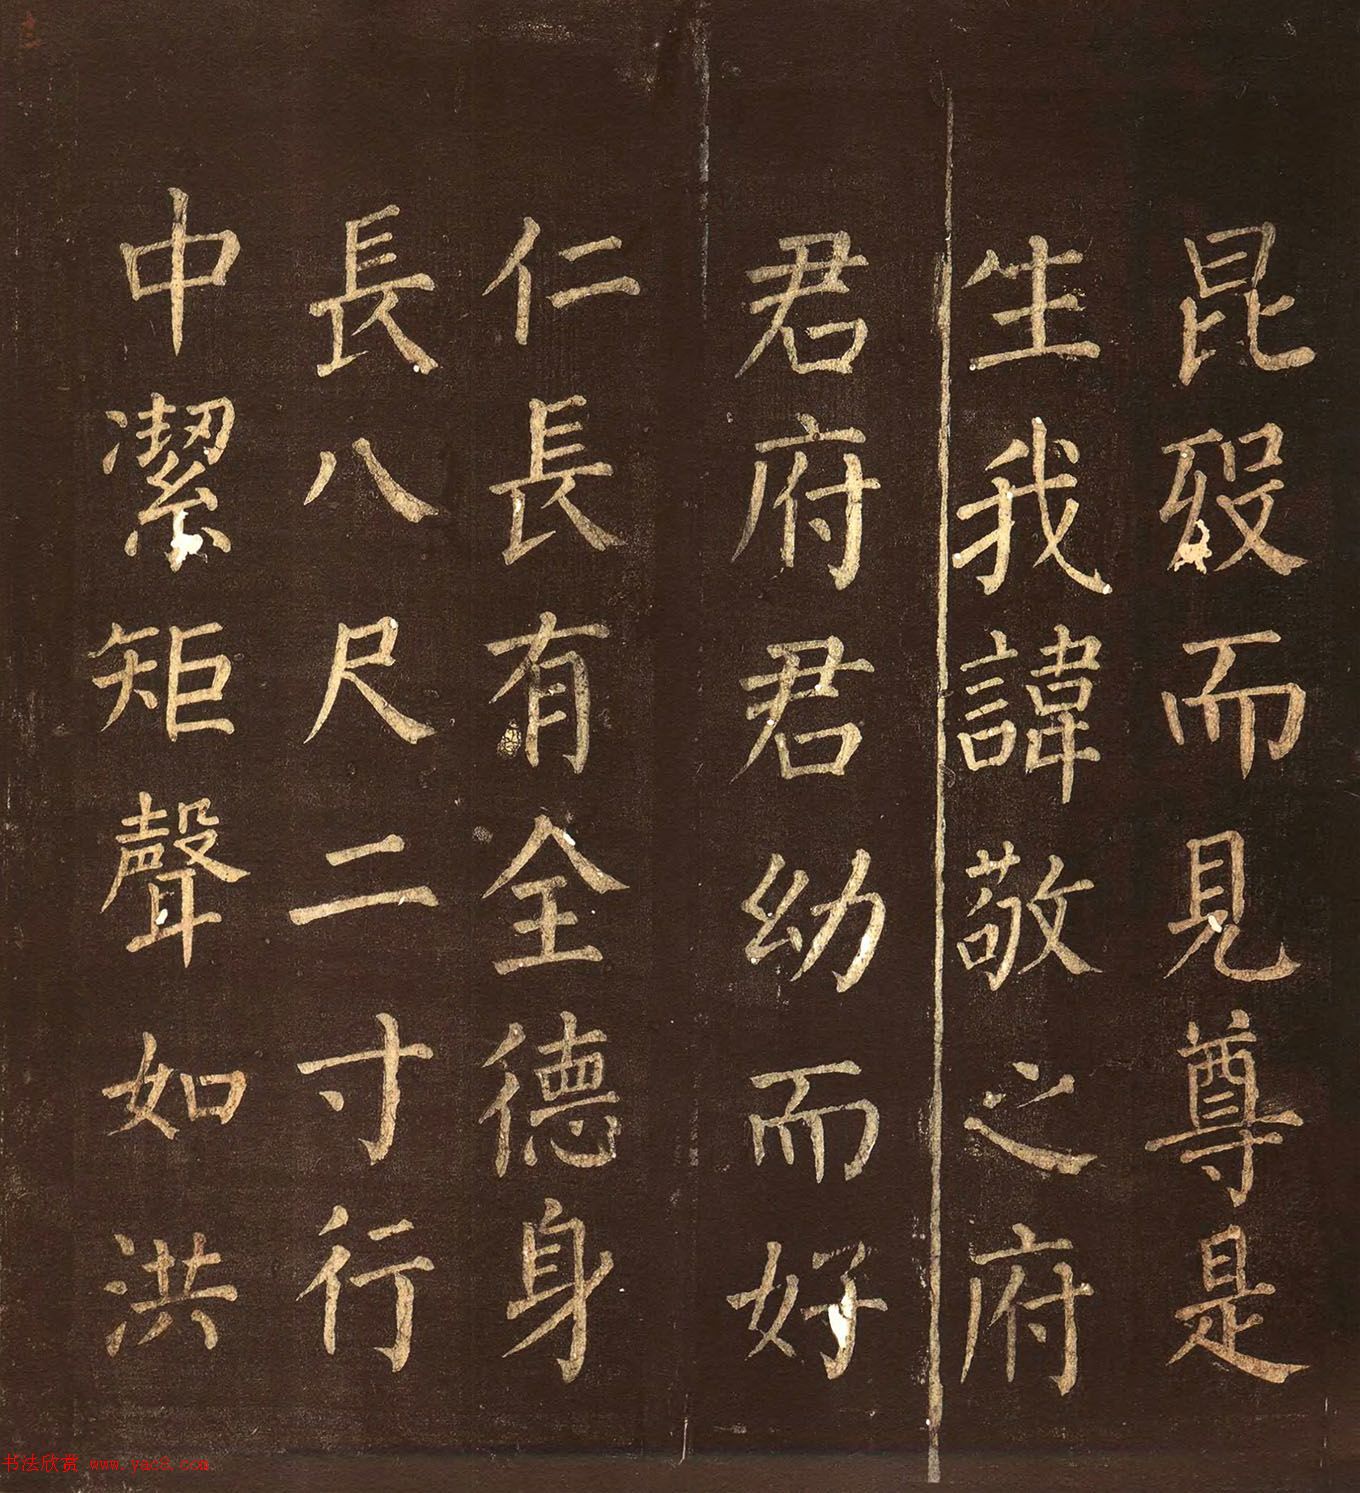 昆歿而見尊是
生我諱敬之府
君府君幼而好
仁長有全德身
長八尺二寸行
中潔矩聲如洪
书法欣赏 www.yac8.com